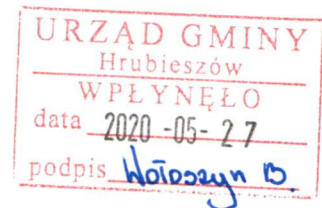 URZĄD GMINY
Hrubieszów
WPŁYNĘŁO
data 2020 -05- 27
podpis Wołoszyn B.